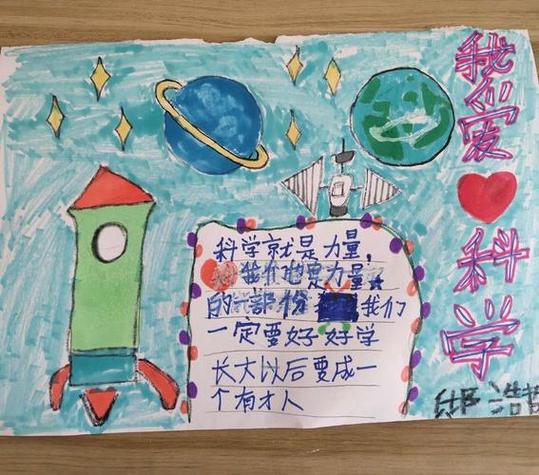 我们爱科学
科学就是力量，
我们也是力量
的一部份 我们
一定要好好学
长大以后要成一
个有才人
浩